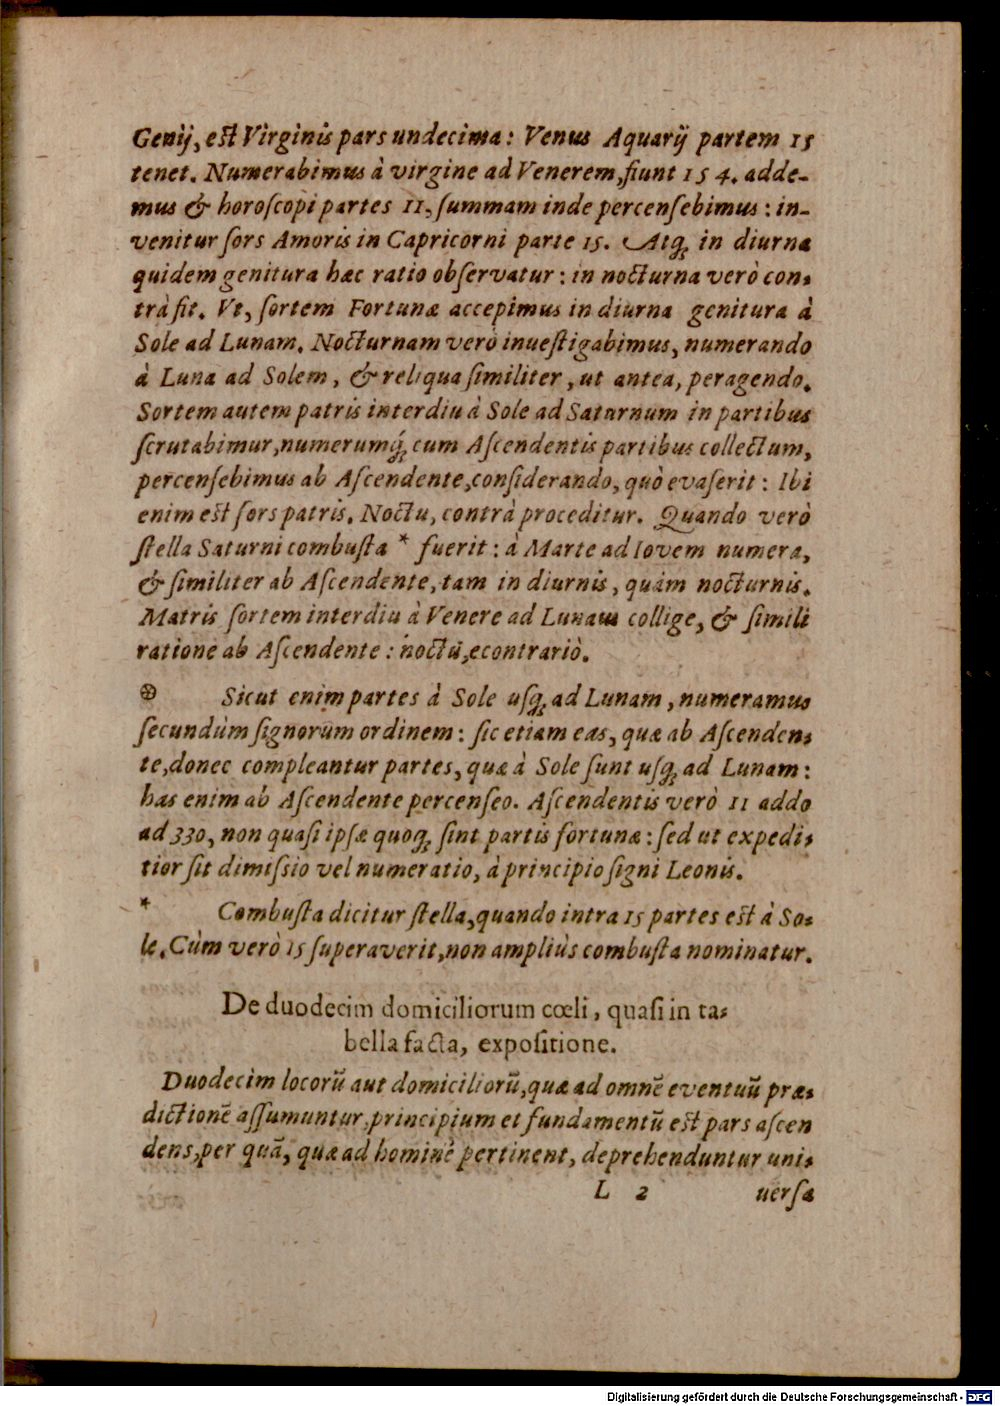 Genij, est Virginis pars undecima: Venus Aquarij partem 15
tenet. Numerabimus à virgine ad Venerem, fiunt 154. adde-
mus & horoſcopi partes 11, ſummam inde percenſebimus: in-
venitur ſors Amoris in Capricorni parte 15. Atq; in diurna
quidem genitura hæc ratio obſervatur: in nocturna verò con-
trà fit. Vt, ſortem Fortunæ accepimus in diurna genitura à
Sole ad Lunam. Nocturnam verò inueſtigabimus, numerando
à Luna ad Solem, & reliqua ſimiliter, ut antea, peragendo.
Sortem autem patris interdiu à Sole ad Saturnum in partibus
ſcrutabimur, numerumq́; cum Aſcendentis partibus collectum,
percenſebimus ab Aſcendente, conſiderando, quò evaſerit: Ibi
enim est ſors patris. Noctu, contrà proceditur. Quando verò
ſtella Saturni combuſta * fuerit: à Marte ad Iovem numera,
& ſimiliter ab Aſcendente, tam in diurnis, quàm nocturnis.
Matris ſortem interdiu à Venere ad Lunam collige, & ſimili
ratione ab Aſcendente: noctù, econtrariò.
⊛ Sicut enim partes à Sole uſq; ad Lunam, numeramus
ſecundùm ſignorum ordinem: ſic etiam eas, quæ ab Aſcenden-
te, donec compleantur partes, quæ à Sole ſunt uſq; ad Lunam:
has enim ab Aſcendente percenſeo. Aſcendentis verò 11 addo
ad 330, non quaſi ipſæ quoq; ſint partis fortunæ: ſed ut expedi-
tior ſit dimiſsio vel numeratio, à principio ſigni Leonis.
* Combuſta dicitur ſtella, quando intra 15 partes est à So-
le. Cùm verò 15 ſuperaverit, non ampliùs combuſta nominatur.
De duodecim domiciliorum cœli, quaſi in ta-
bella facta, expoſitione.
Duodecim locorũ aut domiciliorũ, quæ ad omnẽ eventuũ præ-
dictionẽ aſſumuntur, principium et fundamentũ est pars aſcen
dens, per quã, quæ ad hominẽ pertinent, deprehenduntur uni-
L 2 uerſa
Digitalisierung gefördert durch die Deutsche Forschungsgemeinschaft - DFG